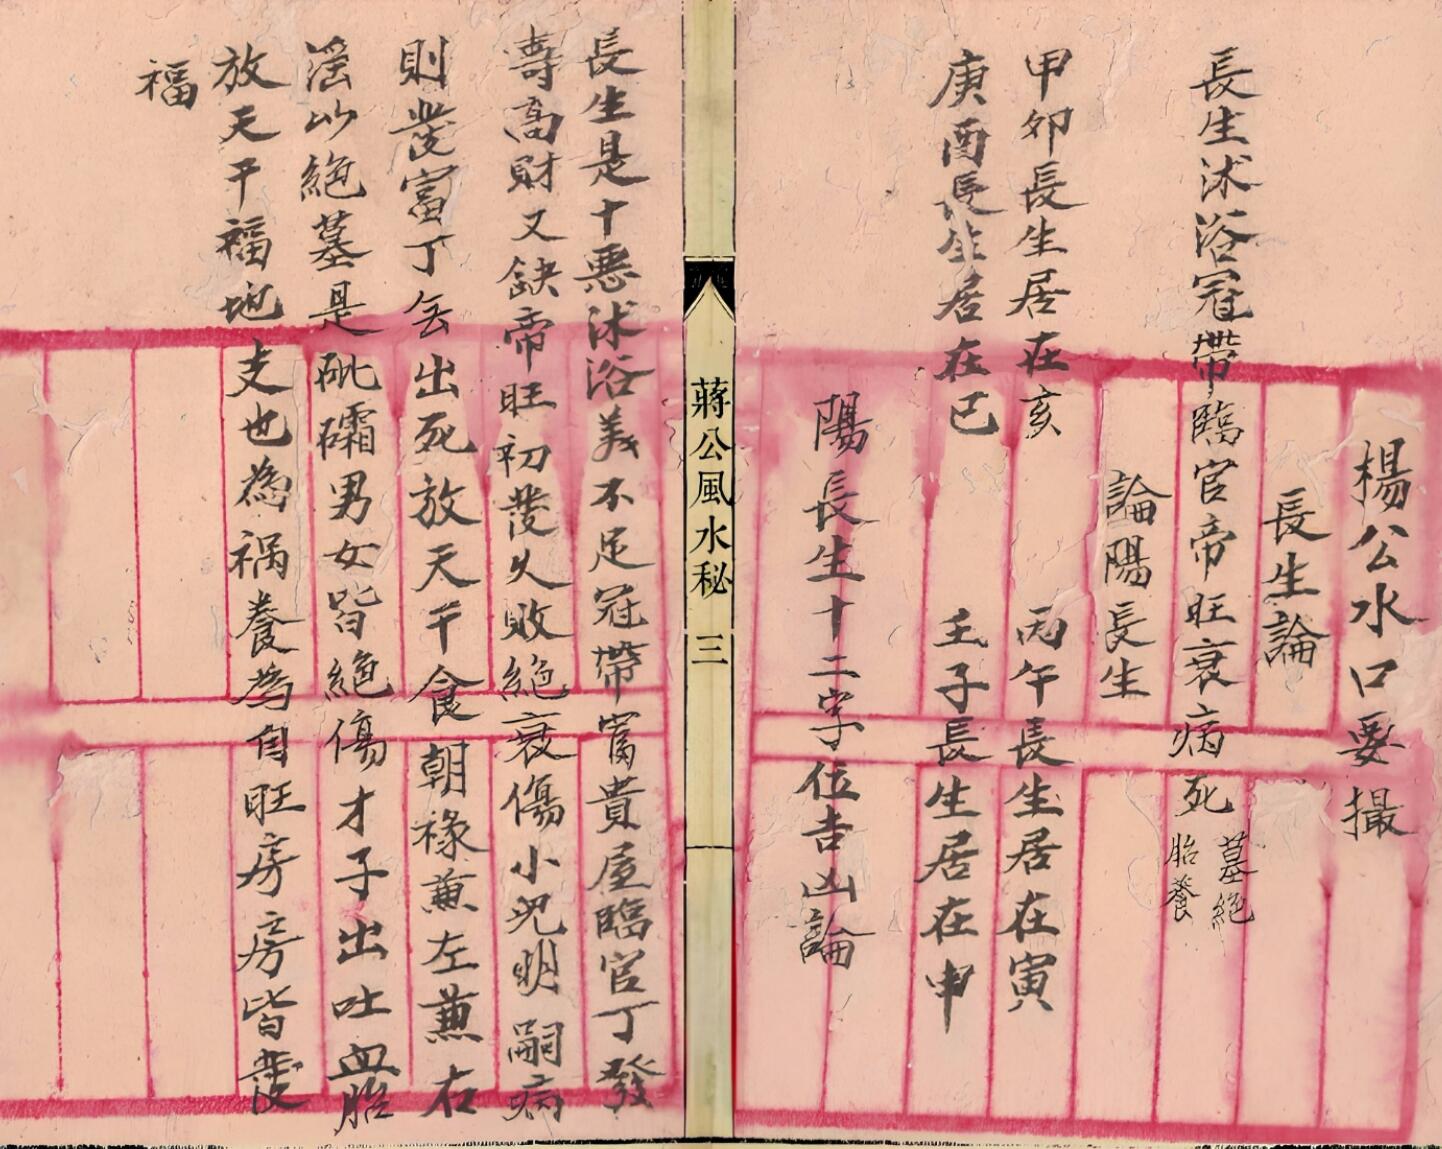 楊公水口要撮
長生論
長生沭浴冠帶臨官帝旺衰病死墓絕胎養
論陽長生
甲卯長生居在亥 丙午長生居在寅
庚酉長生居在巳 壬子長生居在申
陽長生十二字位吉凶論
蔣公風水秘 三
長生是十悪沭浴義不足冠帶富貴屋臨官丁發
壽高財又缺帝旺初發久敗絕衰傷小兒明嗣病
則發富丁去出死放天干食朝祿兼左兼右
淫以絕墓是砒礵男女皆絕傷才子出吐血胎
放天干福地支也為禍養為自旺房房皆發
福